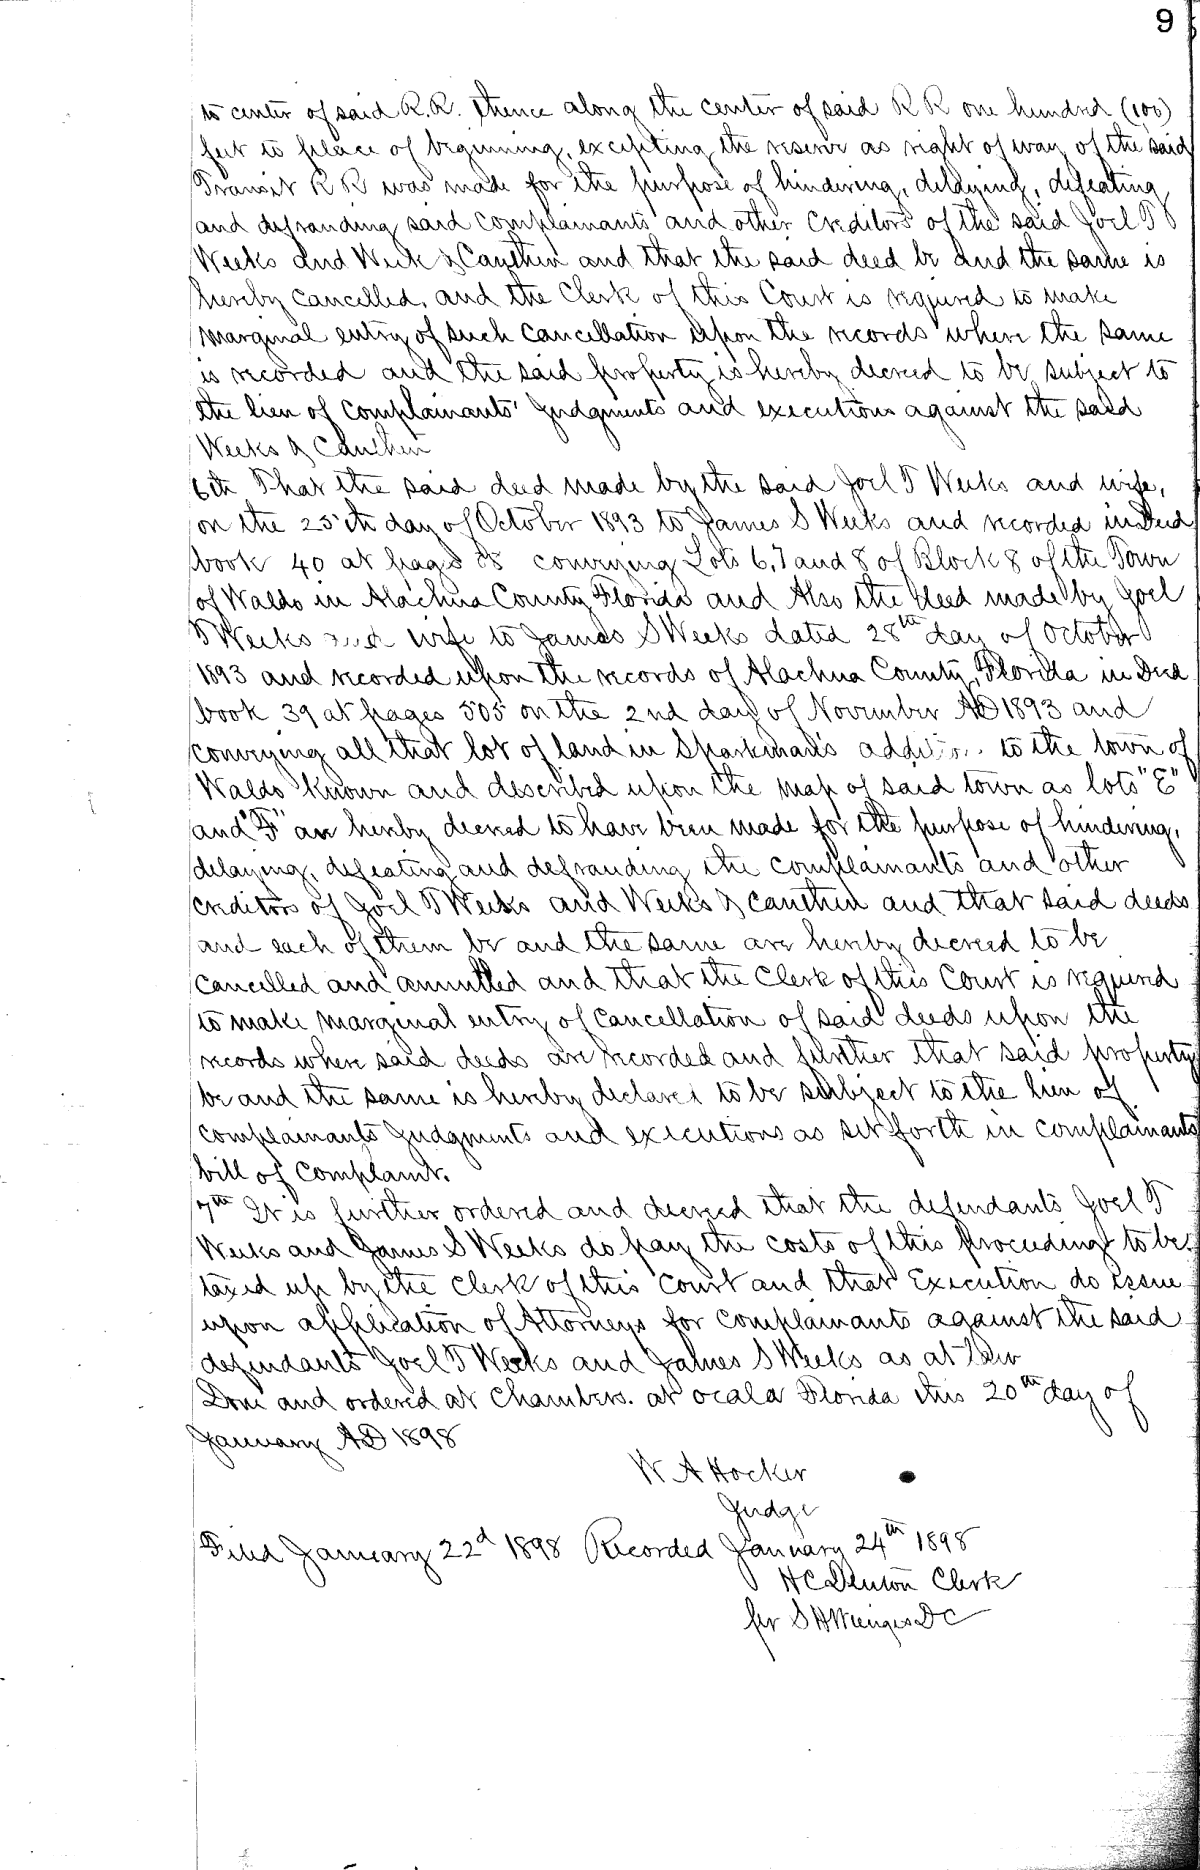 9
to center of said R.R. thence along the center of said R R one hundred (100)
feet to place of beginning, excepting the reserve as right of way of the said
Transit R R was made for the purpose of hindering, delaying, defeating
and defrauding said complainants and other Creditors of the said Joel T
Weeks and Week & Cauthen and that the said deed be and the same is
hereby cancelled, and the Clerk of this Court is required to make
marginal entry of such cancellation upon the records where the same
is recorded and the said property is hereby decreed to be subject to
the lien of complainants' Judgments and executions against the said
Weeks & Cauthen
6th That the said deed made by the said Joel T Weeks and wife,
on the 25th day of October 1893 to James S Weeks and recorded in Deed
book 40 at page 88 conveying Lots 6, 7 and 8 of Block 8 of the Town
of Waldo in Alachua County Florida and Also the deed made by Joel
T Weeks and wife to James S Weeks dated 28th day of October
1893 and recorded upon the records of Alachua County, Florida in Deed
book 39 at pages 505 on the 2nd day of November AD 1893 and
conveying all that lot of land in Sparkman's addition to the town of
Waldo known and described upon the map of said town as lots "E"
and "F" are hereby decreed to have been made for the purpose of hindering,
delaying, defeating and defrauding the complainants and other
creditors of Joel T Weeks and Weeks & Cauthen and that said deeds
and each of them be and the same are hereby decreed to be
cancelled and annulled and that the Clerk of this Court is required
to make marginal entry of cancellation of said deeds upon the
records where said deeds are recorded and further that said property
be and the same is hereby declared to be subject to the lien of
complainants Judgments and executions as set forth in complainants
bill of Complaint.
7th It is further ordered and decreed that the defendants Joel T
Weeks and James S Weeks do pay the costs of this proceeding to be
taxed up by the Clerk of this Court and that Execution do issue
upon application of Attorneys for complainants against the said
defendants Joel T Weeks and James S Weeks as at law
Done and ordered at Chambers. at Ocala Florida this 20th day of
January AD 1898
W A Hocker
Judge
Filed January 22d 1898 Recorded January 24th 1898
H C Denton Clerk
per S H Wienges DC